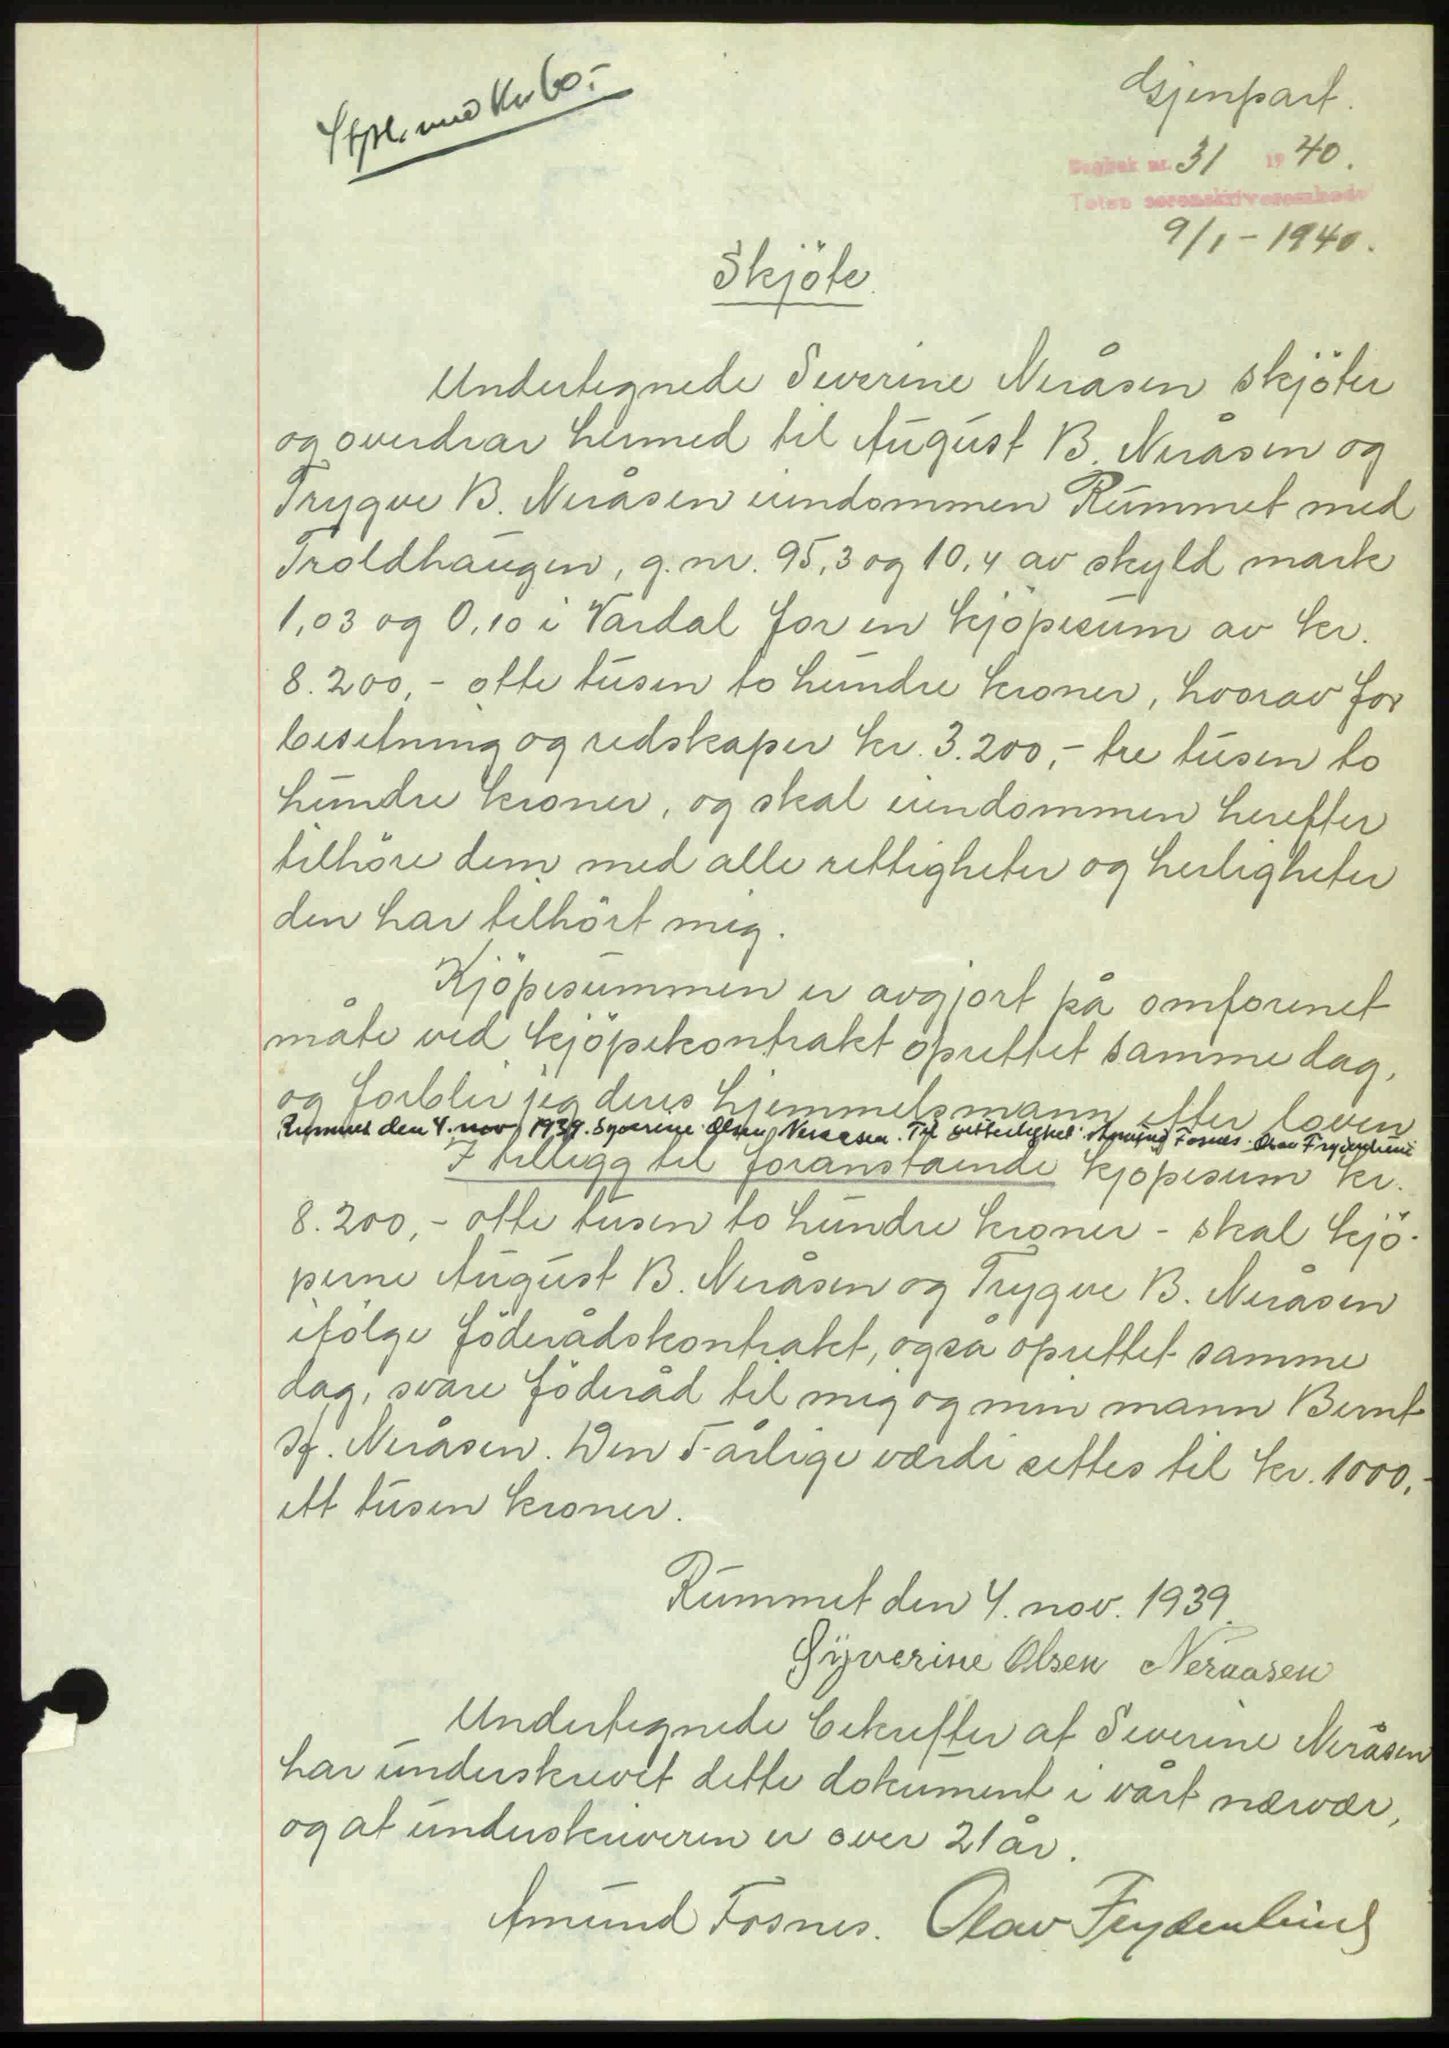 Stpl. med Kr 60.-
Gjenpart.
Dagbok nr. 31 1940.
Toten sorenskriverembede
9/1-1940.
Skjöte.
Undertegnede Severine Neråsen skjöter
og overdrar hermed til August B. Neråsen og
Trygve B. Neråsen eiendommen Rummet med
Troldhaugen, g.nr. 95,3 og 10,4 av skyld mark
1,03 og 0,10 i Vardal for en kjöpesum av kr.
8.200,- otte tusen to hundre kroner, hvorav for
besetning og redskaper kr. 3.200,- tre tusen to
hundre kroner, og skal eiendommen herefter
tilhöre dem med alle rettigheter og herligheter
den har tilhört mig.
Kjöpesummen er avgjort på omforenet
måte ved kjöpekontrakt oprettet samme dag,
og forblir jeg deres hjemmelsmann efter loven
Rummet den 4. nov 1939. Syverine Olsen Neraasen. Til vitterlighet: Amund Fosnes. Olav Frydenlund
I tillegg til foranstående kjöpesum kr.
8.200,- otte tusen to hundre kroner - skal kjö-
perne August B. Neråsen og Trygve B. Neråsen
ifölge föderådskontrakt, også oprettet samme
dag, svare föderåd til mig og min mann Bernt
Neråsen. Den 5-årlige værdi settes til kr. 1000,-
ett tusen kroner.
Rummet den 4. nov. 1939.
Syverine Olsen Neraasen
Undertegnede bekrefter at Severine Neråsen
har underskrevet dette dokument i vårt nærvær,
og at underskriveren er over 21 år.
Amund Fosnes. Olav Frydenlund